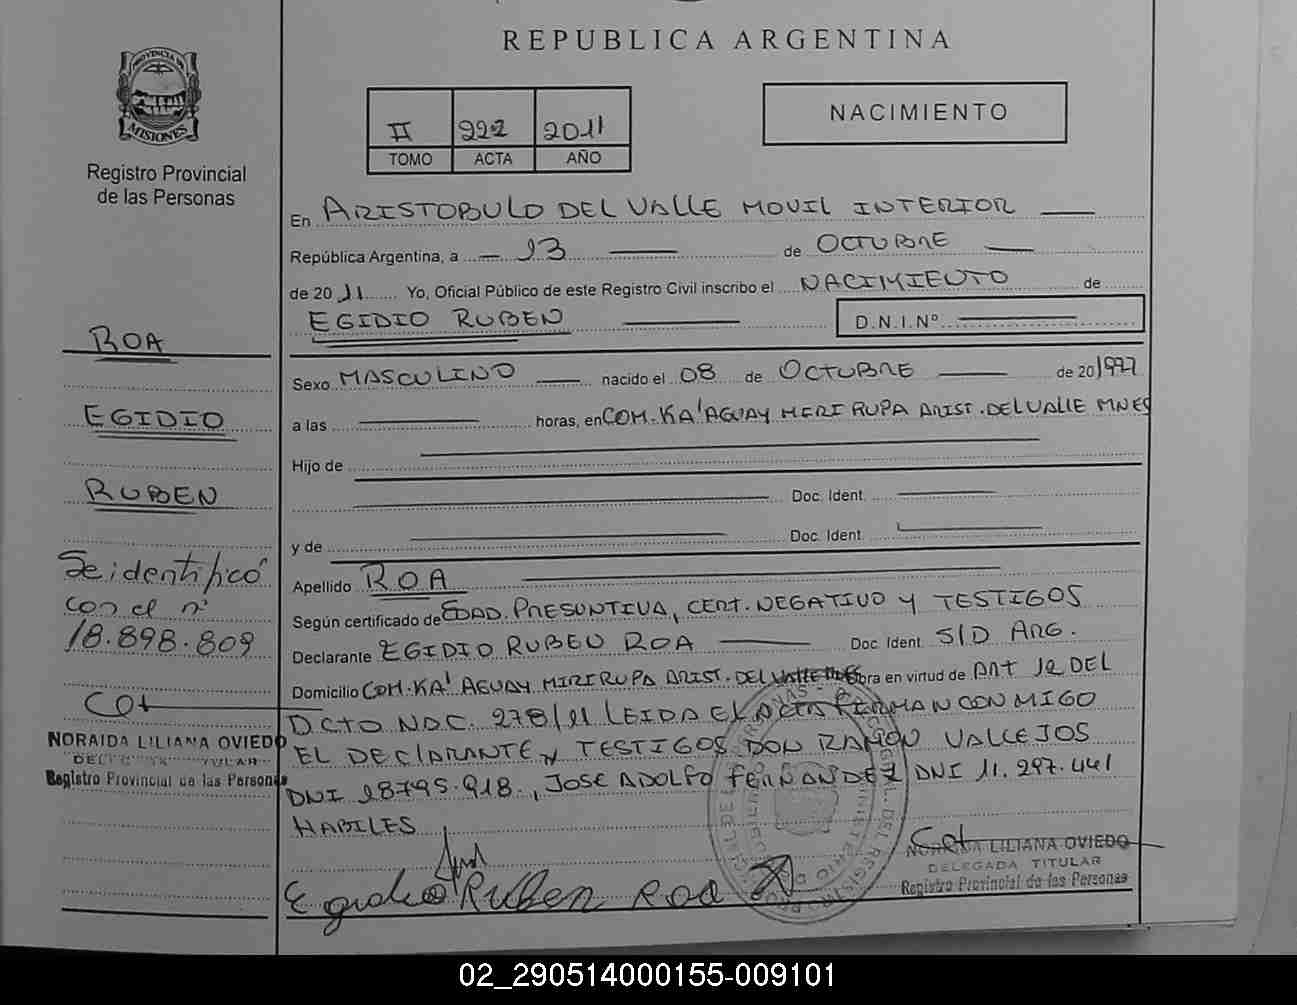 REPUBLICA ARGENTINA
PROVINCIA DE
MISIONES
Registro Provincial
de las Personas
II 222 2011
TOMO ACTA AÑO
NACIMIENTO
En ARISTOBULO DEL VALLE MOVIL INTERIOR
República Argentina, a 13 de OCTUBRE
de 2011 Yo, Oficial Público de este Registro Civil inscribo el NACIMIENTO de
EGIDIO RUBEN D.N.I.Nº
Sexo MASCULINO nacido el 08 de OCTUBRE de 20 1997
a las horas, en COM. KA'AGUAY MERI RUPA ARIST. DEL VALLE MNES
Hijo de
Doc. Ident.
y de Doc. Ident.
Apellido ROA
Según certificado de EDAD. PRESUNTIVA, CERT. NEGATIVO Y TESTIGOS
Declarante EGIDIO RUBEN ROA Doc. Ident. S/D ARG.
Domicilio COM. KA' AGUAY MIRI RUPA ARIST. DEL VALLE obra en virtud de ART 12 DEL
DCTO NAC. 278/11 LEIDA EL ACTA FIRMAN CONMIGO
EL DECLARANTE Y TESTIGOS DON RAMON VALLEJOS
DNI 18795.918., JOSE ADOLFO FERNANDEZ DNI 11.297.441
HABILES
Egidio Ruben Roa
NORAIDA LILIANA OVIEDO
DELEGADA TITULAR
Registro Provincial de las Personas
ROA
EGIDIO
RUBEN
Se identificó
con el nº
18.898.809
NORAIDA LILIANA OVIEDO
TULAR
Registro Provincial de las Persona
02_290514000155-009101